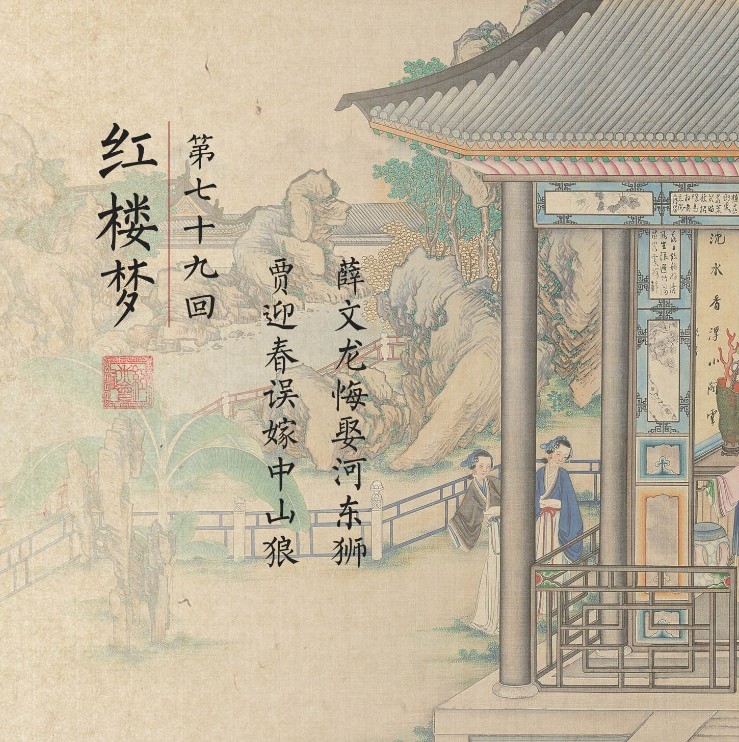 红楼梦
第七十九回
薛文龙悔娶河东狮
贾迎春误嫁中山狼
沈水香浮小阁云